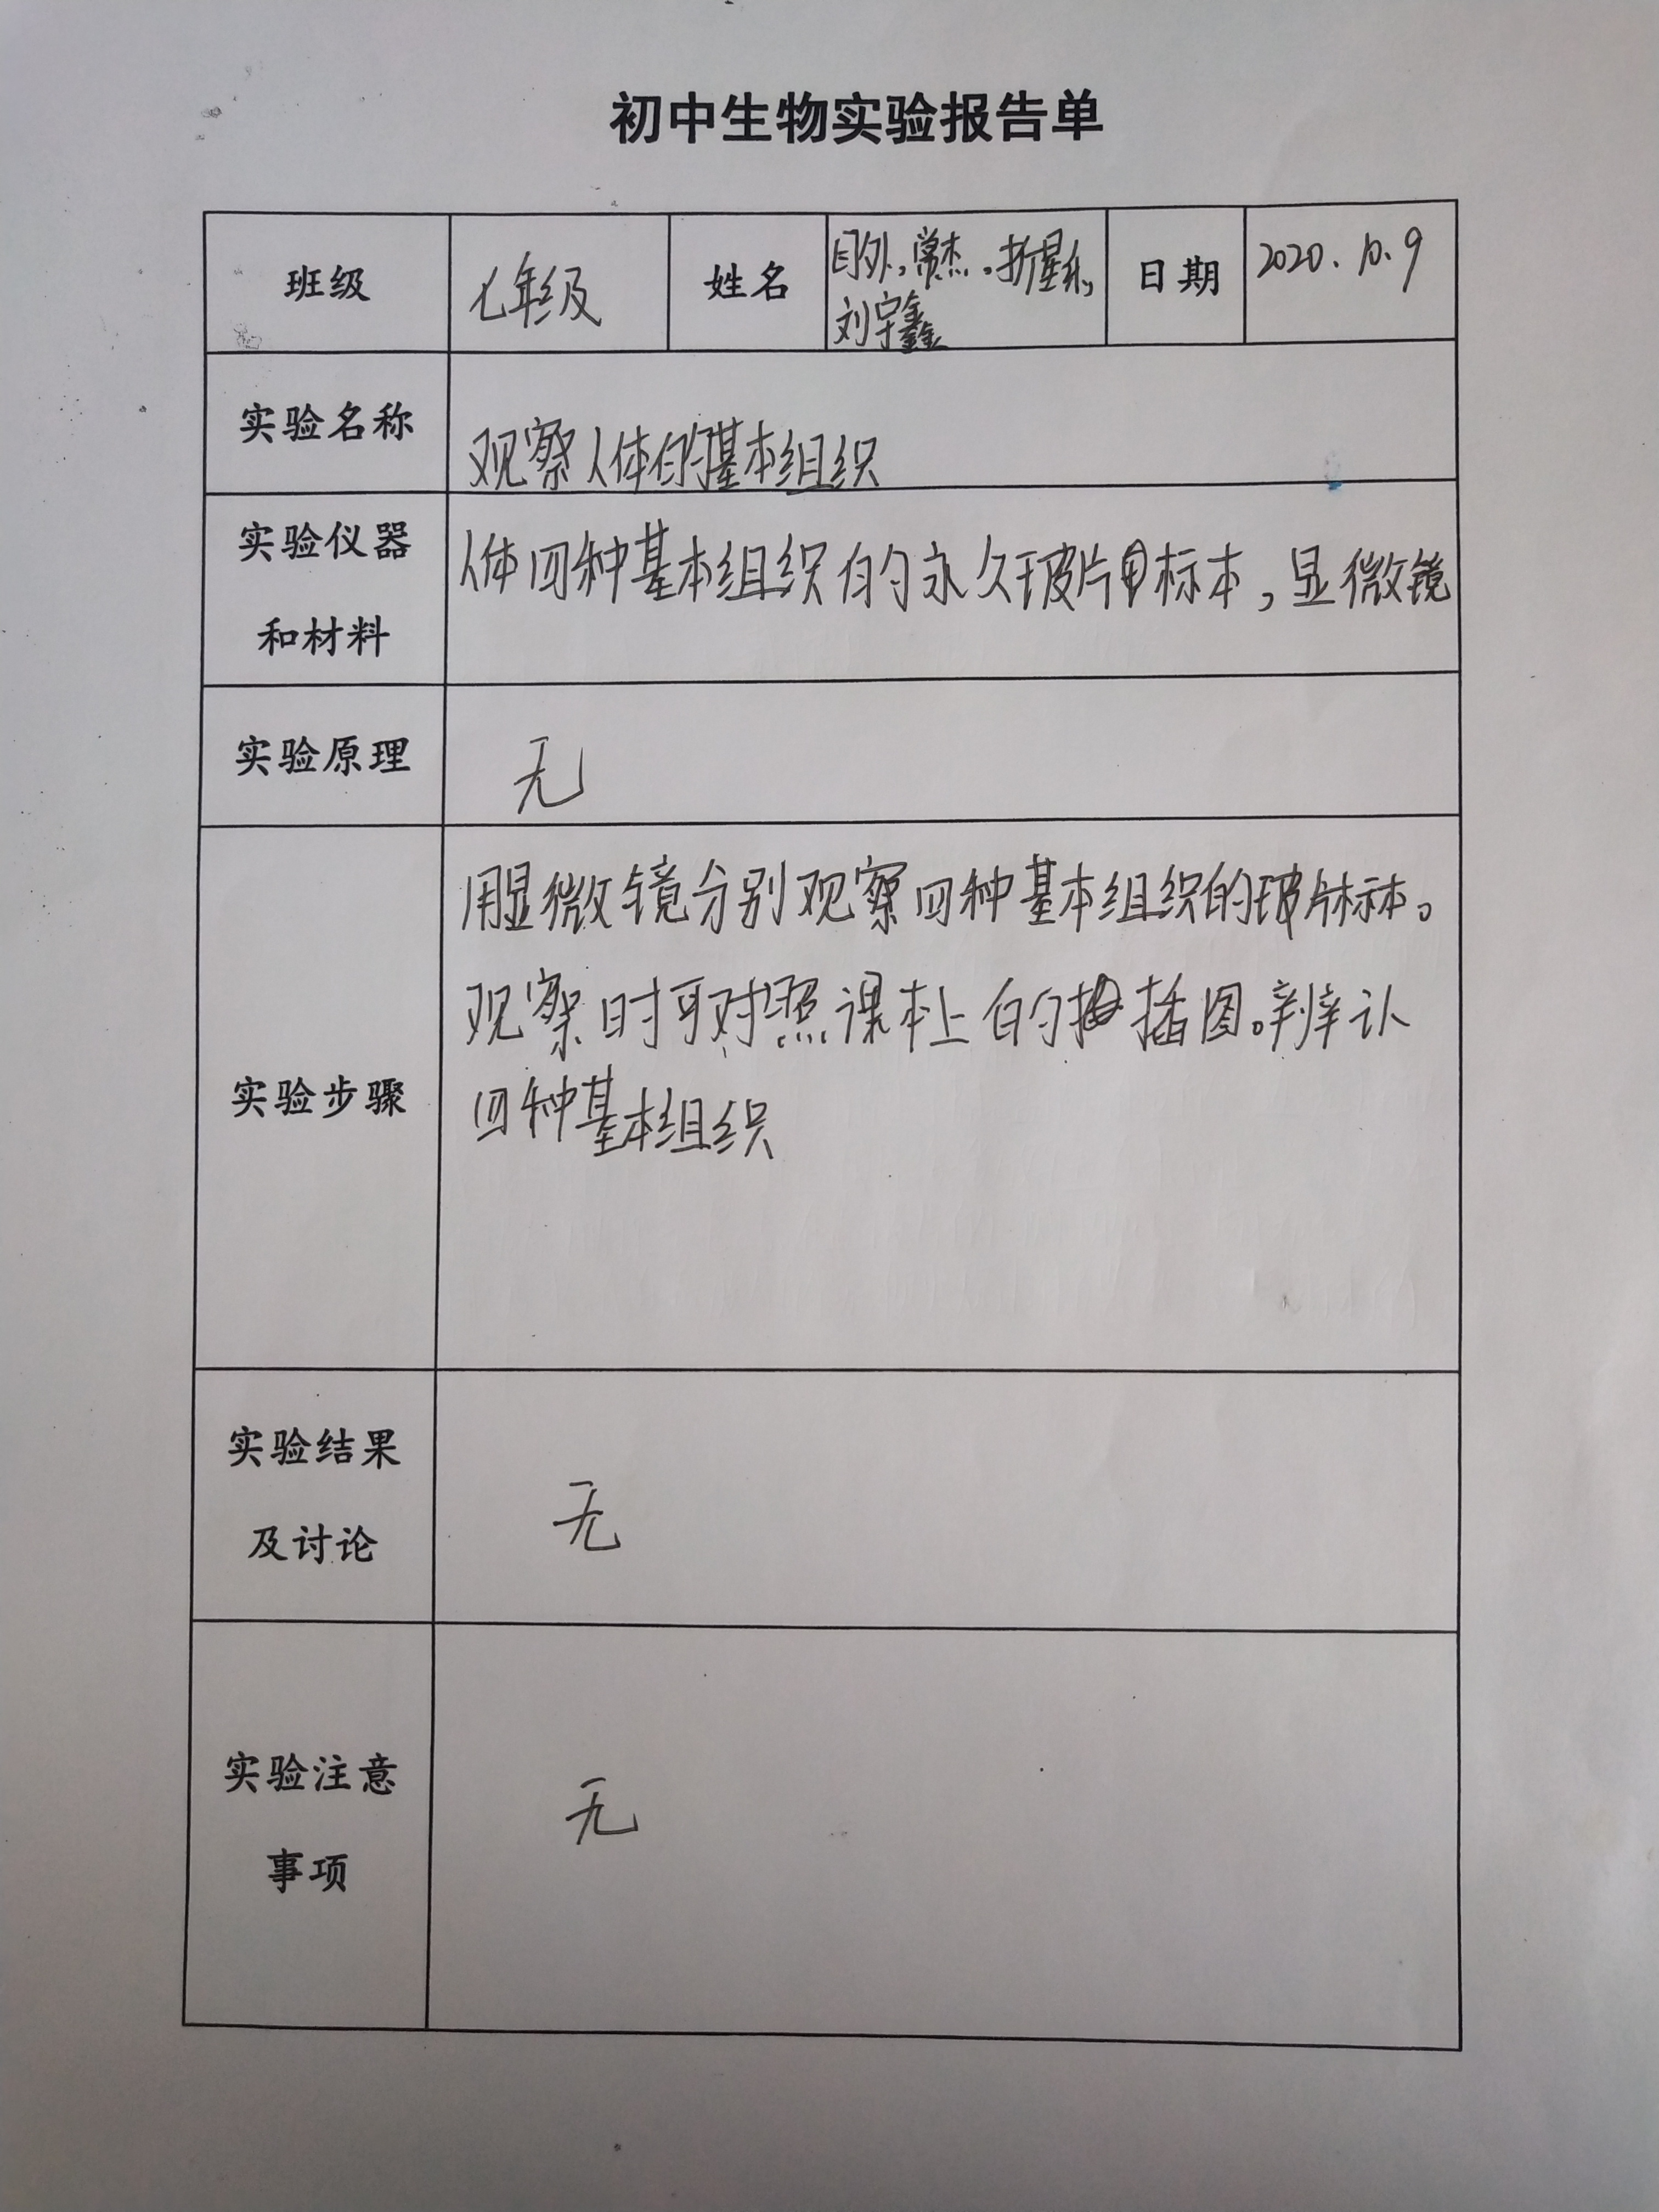 初中生物实验报告单
班级 七年级 姓名 常杰 日期 2020.10.9
刘宇鑫
实验名称 观察人体的基本组织
实验仪器
和材料 人体四种基本组织的永久玻片标本，显微镜
实验原理 无
实验步骤
用显微镜分别观察四种基本组织的玻片标本。
观察时可对照课本上的插图。辨认
四种基本组织
实验结果
及讨论 无
实验注意
事项 无